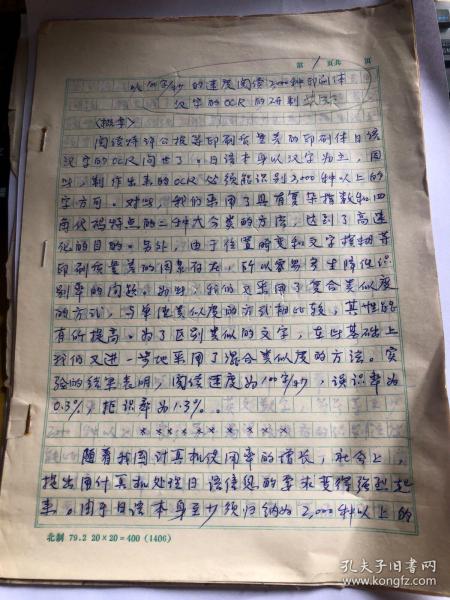 第 1 页共 页
以100字/秒的速度阅读2000种印刷体
汉字的OCR的研制
〈摘要〉
阅读专利公报等印刷质量差的印刷体日语
汉字的OCR问世了。日语本身以汉字为主，因
此，制作出来的OCR必须能识别2,000种以上的
字方可。对此，我们采用了具有复杂指数和四
角代码特点的二种大分类的方法，达到了高速
化的目的。另外，由于位置畸变和文字模糊等
印刷质量差的因素存在，所以容易产生降低识
别率的问题。为此，我们又采用了复合类似度
的方式，与单纯类似度的方式相比较，其性能
有所提高。为了区别类似的文字，在此基础上
我们又进一步地采用了混合类似度的方法。实
验的结果表明，阅读速度为100字/秒，误识率为
0.3%，拒识率为1.3%。
× × × × × × × × ×
随着我国计算机使用率的增长，社会上，
提出用计算机处理日语信息的要求变得强烈起
来。由于日语本身至少须归纳为2,000种以上的
北制 79.2 20×20=400 (1406)
孔夫子旧书网